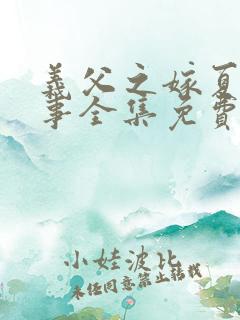 義父之嫁夏
事全集免費
小娃波比
未经同意禁止转载